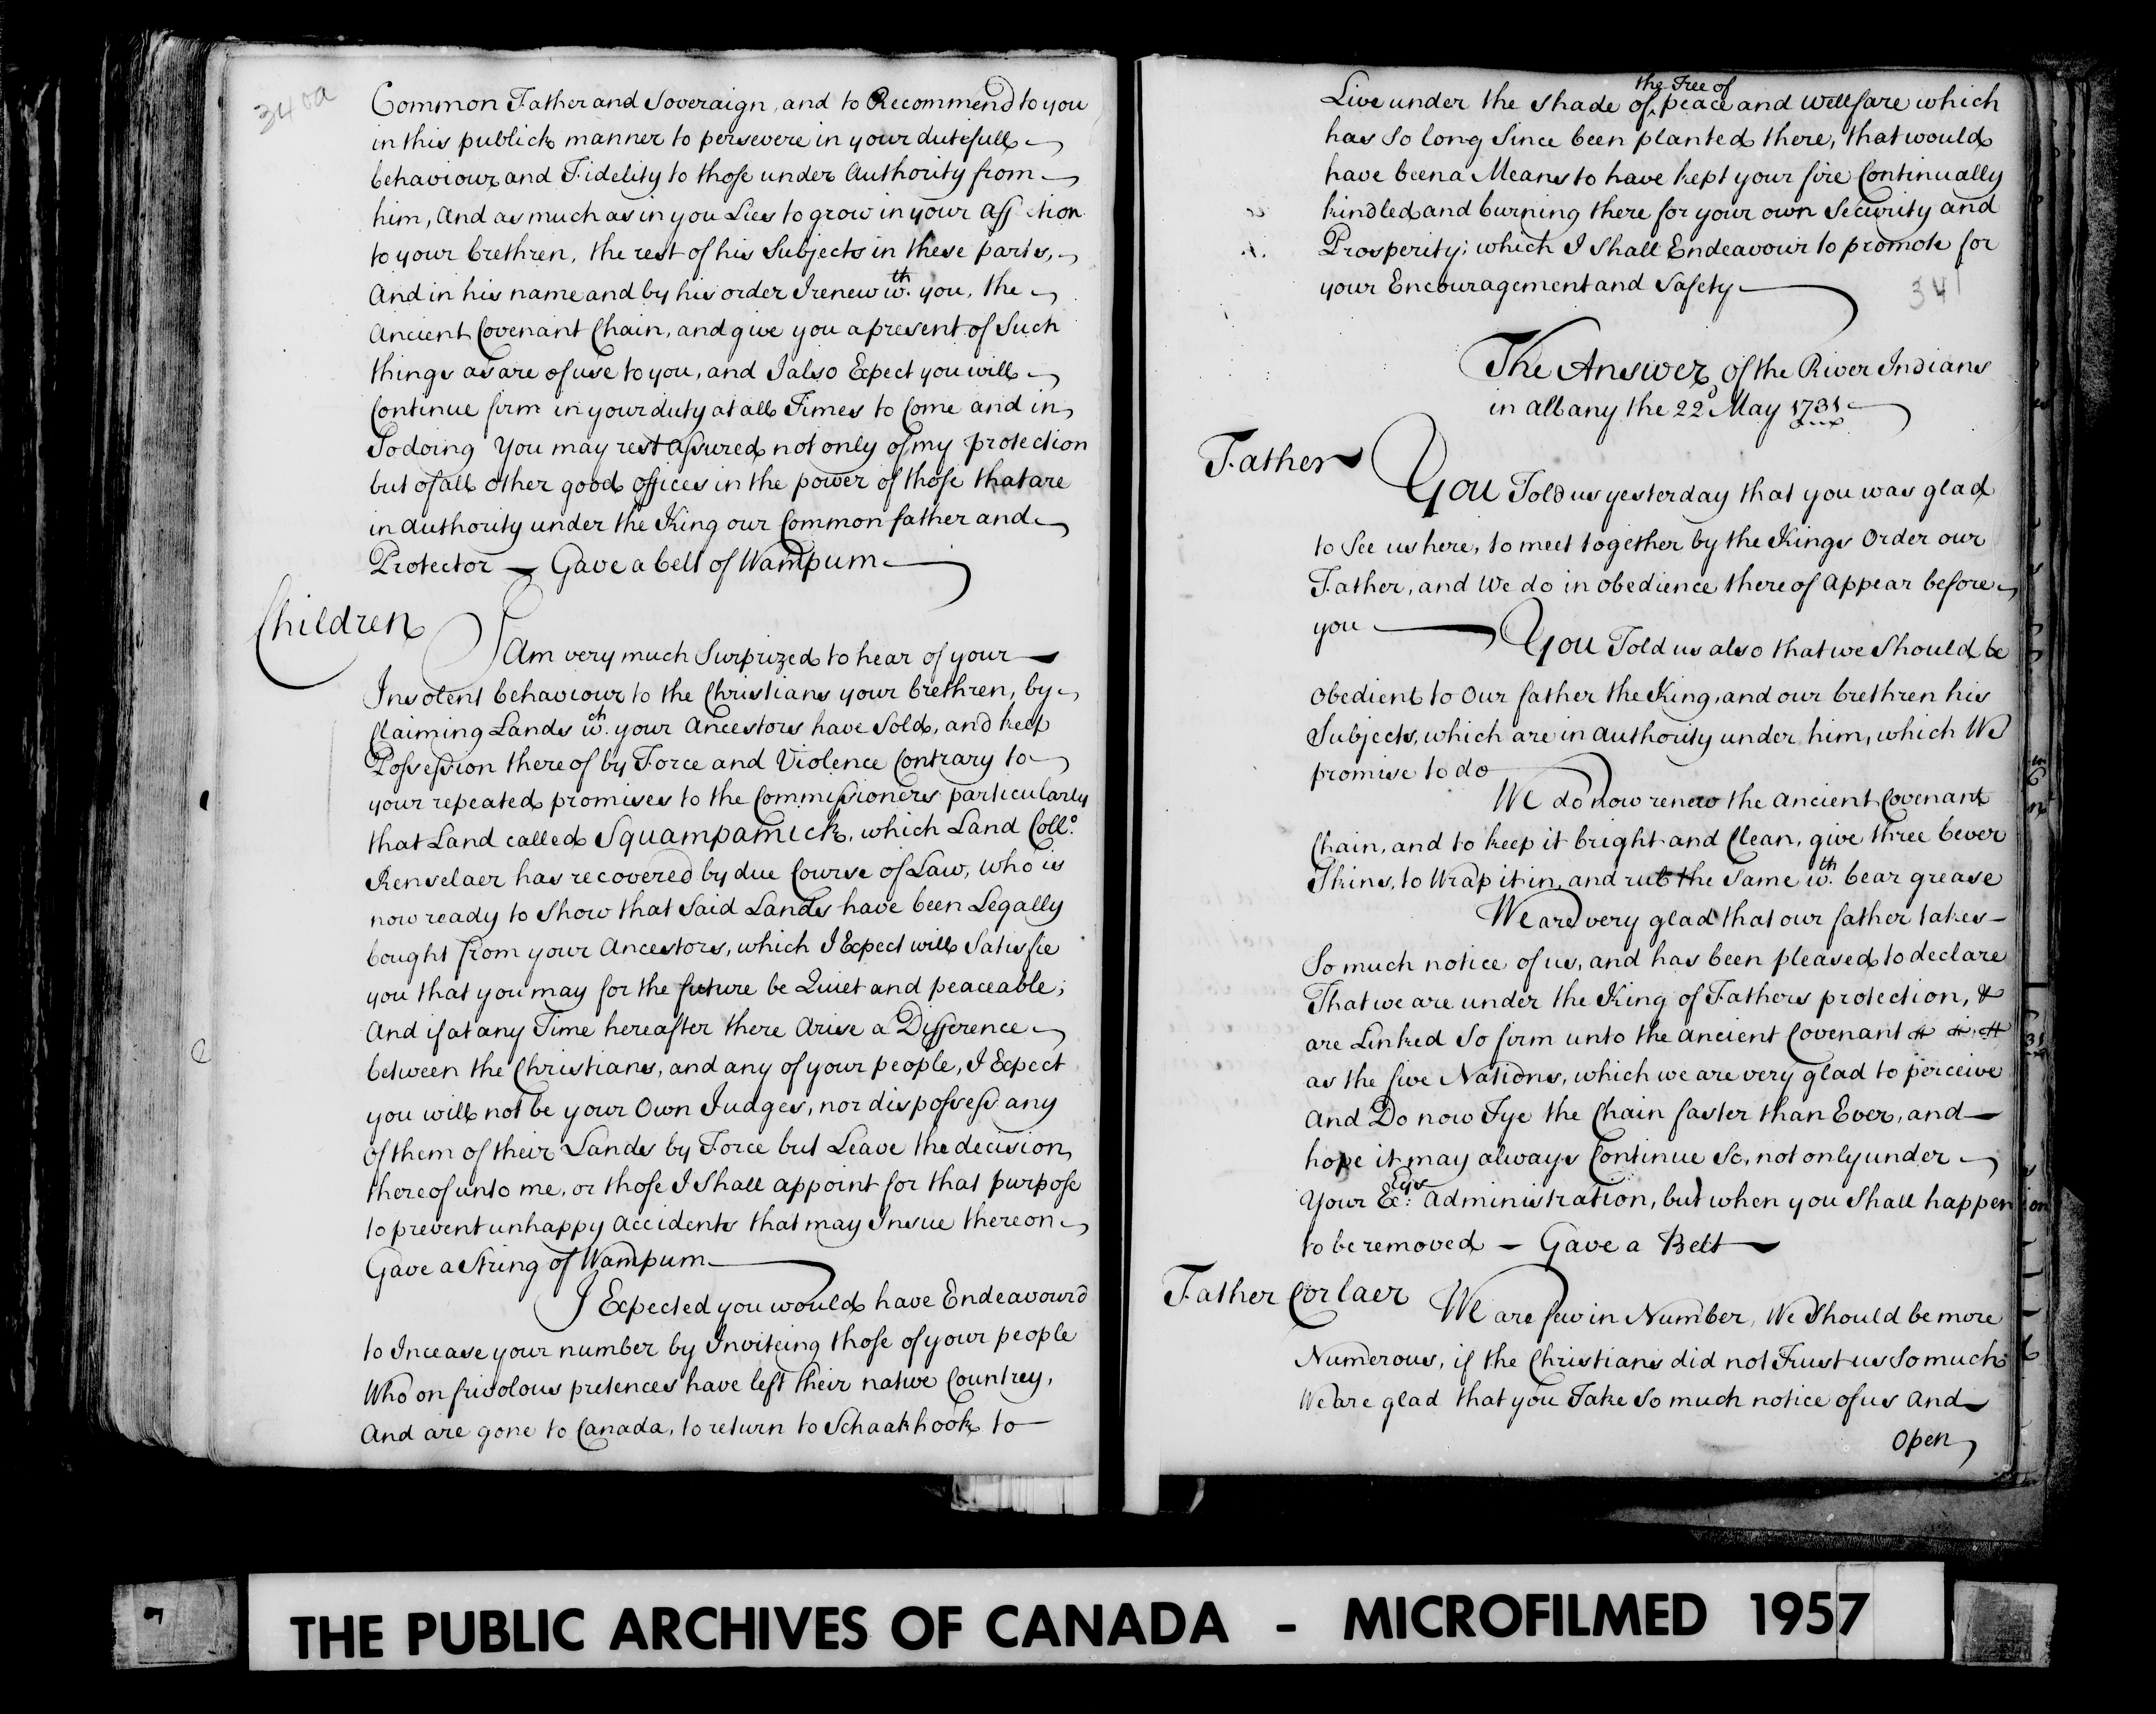 340a
Common Father and Soveraign, and to Recommend to you
in this publick manner to persevere in your dutifull
behaviour and Fidelity to those under Authority from
him, And as much as in you Lies to grow in your Aff ction
to your brethren, the rest of his Subjects in these parts,
And in his name and by his order I renew wth. you, the
Ancient Covenant Chain, and give you a present of Such
things as are of use to you, and I also Expect you will
Continue firm in your duty at all Times to Come and in
So doing You may rest assured not only of my protection
but of all other good offices in the power of those that are
in authority under the King our Common father and
Protector — Gave a belt of Wampum
Children
I Am very much Surprized to hear of your
Insolent behaviour to the Christians your brethren, by
Claiming Lands wch. your Ancestors have Sold, and keep
Possession there of by Force and Violence Contrary to
your repeated promises to the Commissioners particularly
that Land called Squampamick, which Land Collo.
Renselaer has recovered by due Course of Law, who is
now ready to Show that Said Lands have been Legally
bought from your Ancestors, which I Expect will Satisfie
you that you may for the future be Quiet and peaceable;
And if at any Time hereafter there Arise a Difference
between the Christians, and any of your people, I Expect
you will not be your Own Judges, nor disposess any
of them of their Lands by Force but Leave the decision
there of unto me, or those I Shall appoint for that purpose
to prevent unhappy accidents that may Insue thereon
Gave a String of Wampum
I Expected you would have Endeavour'd
to Incease your number by Inviteing those of your people
Who on frivolous pretences have left their native Countrey,
And are gone to Canada, to return to Schaakhook to
the Tree of
Live under the Shade of peace and Wellfare which
has So long Since been planted there, that would
have been a Means to have kept your fire Continually
kindled and burning there for your own Security and
Prosperity; which I Shall Endeavour to promote for
your Encouragement and Safety
341
The Answer of the River Indians
in albany the 22d May 1731
Father
You Told us yesterday that you was glad
to See us here, to meet together by the Kings Order our
Father, and We do in obedience there of Appear before
you
You Told us also that we Should be
Obedient to Our father the King, and our brethren his
Subjects, which are in Authority under him, which We
promise to do
We do now renew the Ancient Covenant
Chain, and to keep it bright and Clean, give three bever
Skins, to Wrap it in, and rub the Same wth. bear grease
We are very glad that our father takes
So much notice of us, and has been pleased to declare
That we are under the King of Fathers protection, &
are Linked So firm unto the Ancient Covenant
as the five Nations, which we are very glad to perceive
And Do now Tye the Chain faster than Ever, and
hope it may always Continue So, not only under
Your Excys: administration, but when you Shall happen
to be removed — Gave a Belt
Father Corlaer
We are few in Number, We Should be more
Numerous, if the Christians did not Trust us So much
We are glad that you Take So much notice of us And
Open
THE PUBLIC ARCHIVES OF CANADA - MICROFILMED 1957